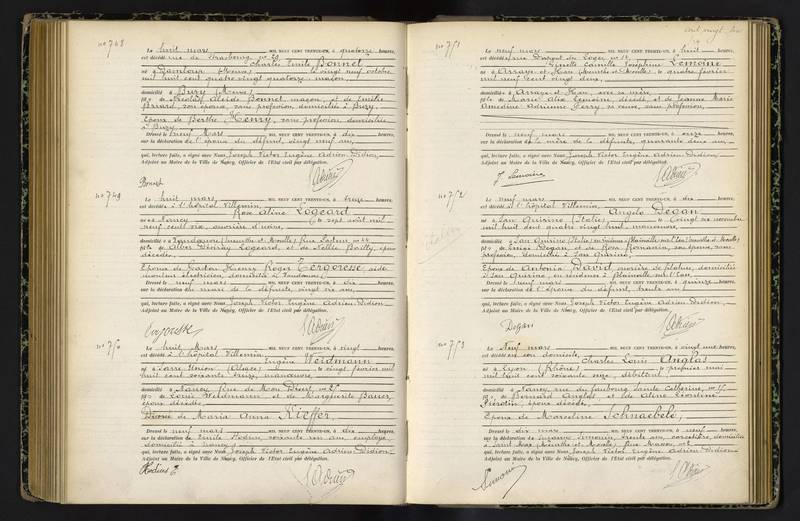 no 748
Le huit mars MIL NEUF CENT TRENTE-UN, à quatorze heures,
est décédé rue de Strasbourg no 29
Charles Emile Bonnet
(Meuse) le vingt neuf octobre
mil huit cent quatre vingt quatorze, maçon,
domicilié à Bury (Meuse)
fils de Nicolas Alcide Bonnet maçon, et de Emilie
son épouse, sans profession, domiciliés à Bury.
Epoux de Berthe Henry, sans profession, domiciliée
à Bury.
Dressé le neuf mars MIL NEUF CENT TRENTE-UN, à dix heures,
sur la déclaration de l'épouse du défunt, vingt neuf ans,
qui, lecture faite, a signé avec Nous, Joseph Victor Eugène Adrien Didion,
Adjoint au Maire de la Ville de Nancy, Officier de l'Etat civil par délégation.
Bonnet
no 749
Le huit mars MIL NEUF CENT TRENTE-UN, à treize heures,
est décédée à l'hôpital Villemin,
Rose Aline Logeard
née à Nancy le sept août mil
neuf cent six, ouvrière d'usine,
domiciliée à (Meurthe et Moselle) Rue Pasteur
fille de Albert Logeard, et de Bailly, époux
décédés.
Epouse de Gaston Henry Roger aide
monteur électricien domicilié à
Dressé le neuf mars MIL NEUF CENT TRENTE-UN, à dix heures,
sur la déclaration du mari de la défunte, vingt six ans,
qui, lecture faite, a signé avec Nous, Joseph Victor Eugène Adrien Didion
Adjoint au Maire de la Ville de Nancy, Officier de l'Etat civil par délégation.
no 750
Le huit mars MIL NEUF CENT TRENTE-UN, à vingt heures,
est décédé à l'hôpital Villemin,
Eugène Weidmann
né à Sarre Union (Alsace) le vingt février mil
huit cent soixante treize, manœuvre,
domicilié à Nancy, Rue de Mon Désert, no 25
fils de Louis Weidmann et de Marguerite Bauer,
époux décédés.
Divorcé de Maria Anna Kieffer,
Dressé le neuf mars MIL NEUF CENT TRENTE-UN, à dix heures,
sur la déclaration de Emile Hodius, soixante ans, employé
domicilié à Nancy
qui, lecture faite, a signé avec Nous, Joseph Victor Eugène Adrien Didion
Adjoint au Maire de la Ville de Nancy, Officier de l'Etat civil par délégation.
Hodius E
no 751
Le neuf mars MIL NEUF CENT TRENTE-UN, à huit heures,
est décédé rue
Camille Joséphine Lemoine
née à Arraye et Han (Meurthe et Moselle) le quatre février
mil neuf cent vingt deux,
domiciliée à Arraye et Han, avec sa mère,
fille de Marie Alix Lemoine, décédé, et de Jeanne Marie
Adrienne sa veuve, sans profession,
Dressé le neuf mars MIL NEUF CENT TRENTE-UN, à onze heures,
sur la déclaration de la mère de la défunte, quarante deux ans,
qui, lecture faite, a signé avec Nous, Joseph Victor Eugène Adrien Didion
Adjoint au Maire de la Ville de Nancy, Officier de l'Etat civil par délégation.
no 752
Le huit mars MIL NEUF CENT TRENTE-UN, à heures,
est décédé à l'hôpital Villemin,
Angelo Degan
né à San Quirino (Italie) le vingt six novembre
mil huit cent quatre vingt, manœuvre,
domicilié à San Quirino (Italie)
fils de Luigi Degan, et de Rosa Romanin, son épouse, sans
profession, domiciliés à San Quirino,
Epoux de Antonia David, ouvrière de filature, domiciliée
à San Quirino
Dressé le neuf mars MIL NEUF CENT TRENTE-UN, à quinze heures,
sur la déclaration de l'épouse du défunt, trente ans,
qui, lecture faite, a signé avec Nous, Joseph Victor Eugène Adrien Didion,
Adjoint au Maire de la Ville de Nancy, Officier de l'Etat civil par délégation.
Degan
no 753
Le Neuf mars MIL NEUF CENT TRENTE-UN, à vingt une heures,
est décédé en son domicile,
Charles Louis Anglas
né à Lyon (Rhône) le premier mai
mil huit cent soixante neuf, débitant,
domicilié à Nancy, rue du faubourg Sainte Catherine, no 15
fils de Bernard Anglas et de Aline Léontine
époux décédés.
Epoux de Marceline Schnaebelé,
Dressé le dix mars MIL NEUF CENT TRENTE-UN, à neuf heures,
sur la déclaration de Suzanne trente ans, corsetière, domiciliée
à Saint Max (Meurthe et Moselle)
qui, lecture faite, a signé avec Nous, Joseph Victor Eugène Adrien Didion
Adjoint au Maire de la Ville de Nancy, Officier de l'Etat civil par délégation.